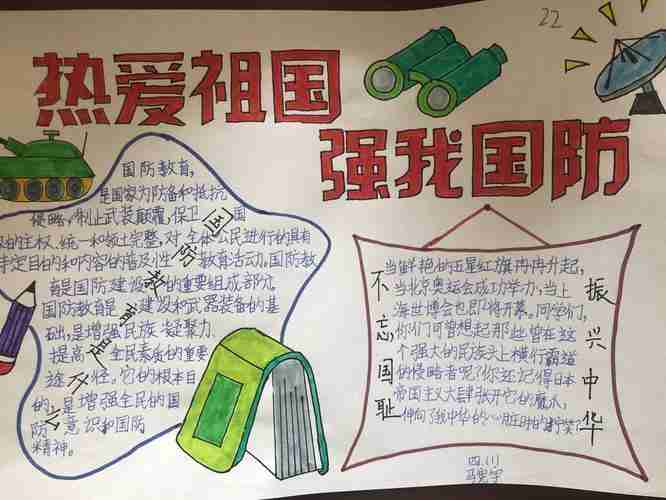 22
热爱祖国
强我国防
国防教育,
是国家为防备和抵抗
侵略,制止武装颠覆,保卫国
的主权、统一和领土完整,对全体公民进行的具有
特定目的和内容的普及性教育活动。国防教
育是国防建设的重要组成部分。
国防教育是建设和武器装备的基
础,是增强民族凝聚力、
提高全民素质的重要
途径。它的根本目
的,是增强全民的国
防意识和国防
精神。
国防教育是什么
不忘国耻
当鲜艳的五星红旗冉冉升起,
当北京奥运会成功举办,当上
海世博会也即将开幕。同学们,
你们可曾想起那些曾在这
个强大的民族头上横行霸道
的侵略者呢?你还记得日本
帝国主义大肆张开它的魔爪,
伸向了我中华的心脏时的
振兴中华
四.(1)